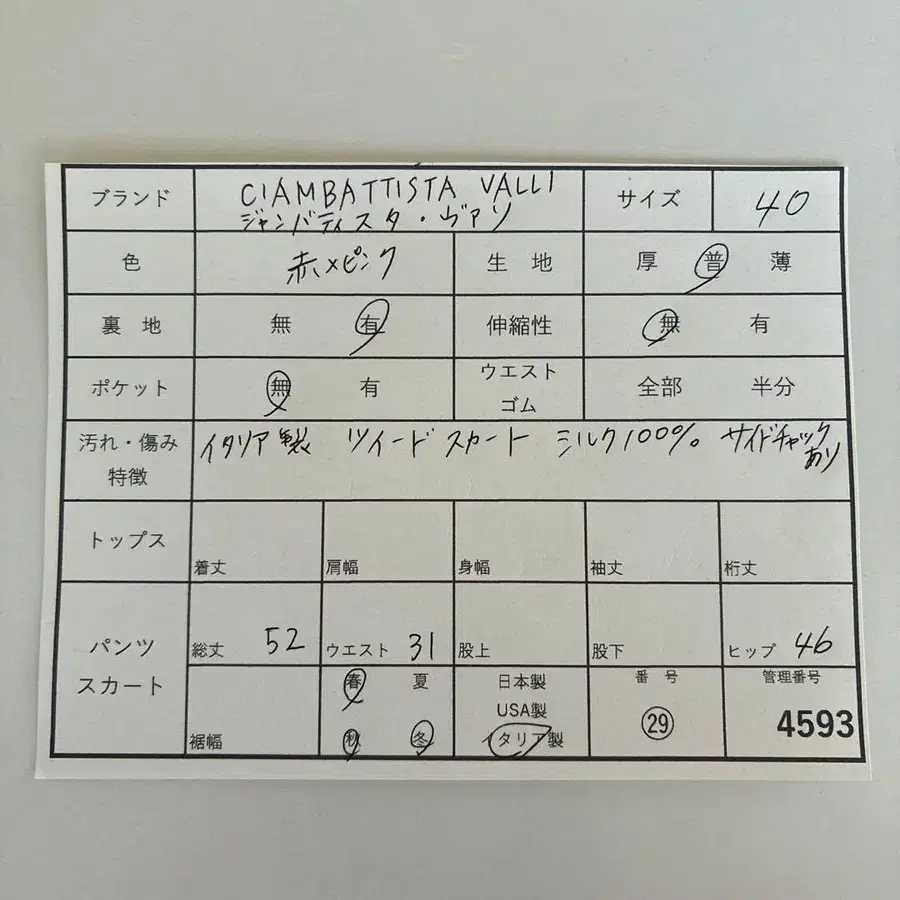 ブランド CIAMBATTISTA VALLI サイズ 40
ジャンバティスタ・ヴァリ
色 赤×ピンク 生地 厚 普 薄
裏地 無 有 伸縮性 無 有
ポケット 無 有 ウエスト
ゴム 全部 半分
汚れ・傷み
特徴 イタリア製 ツイードスカート シルク100% サイドチャック
あり
トップス 着丈 肩幅 身幅 袖丈 桁丈
パンツ
スカート 総丈 52 ウエスト 31 股上 股下 ヒップ 46
裾幅 春 夏
秋 冬
日本製
USA製
イタリア製
番号
29
管理番号
4593